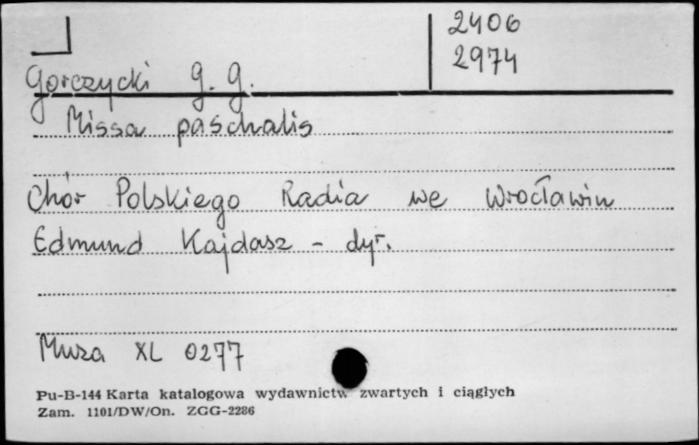 2406
2974
Gorczycki G. G.
Missa paschalis
Chór Polskiego Radia we Wrocławiu
Edmund Kajdasz - dyr.
Muza XL 0277
Pu-B-144 Karta katalogowa wydawnictw zwartych i ciągłych
Zam. 1101/DW/On. ZGG-2286